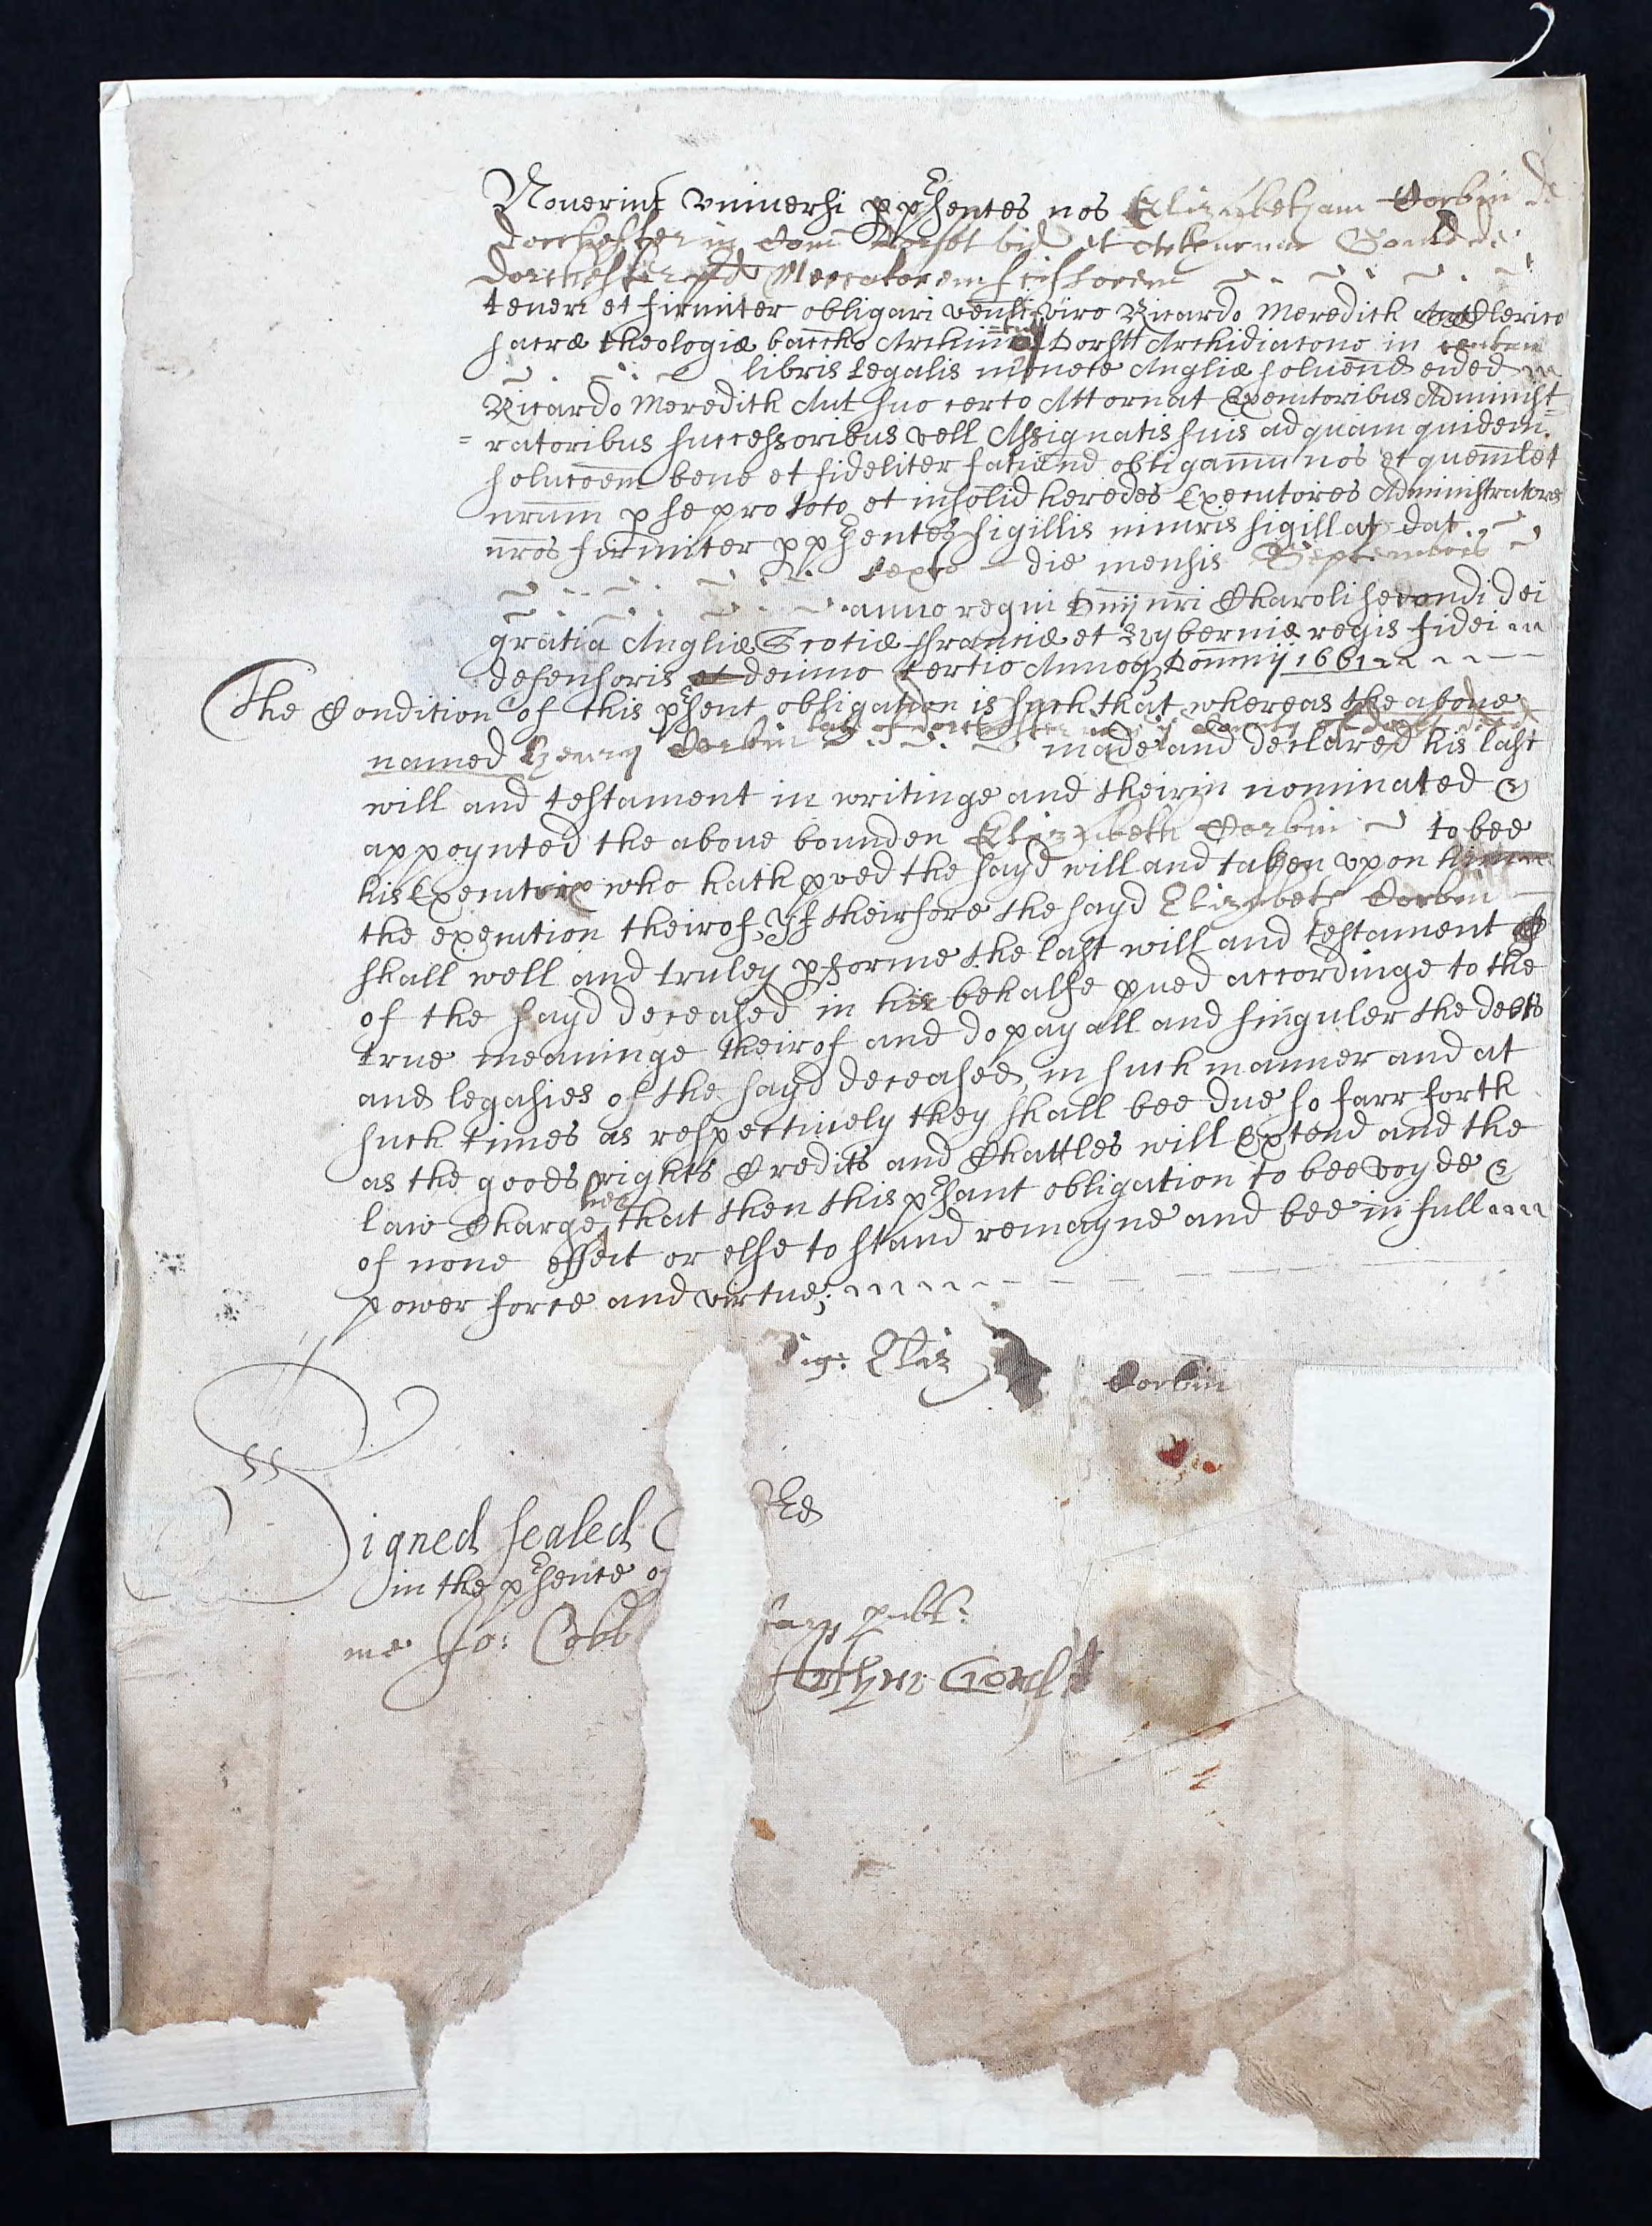 Noverint universi p pʳsentes nos Elizabetham Corbin de
Dorchester in Com Dorset vid et Gould de
Dorchester Mercatorem
teneri et firmiter obligari venli viro Ricardo Meredith Clerico
sacræ theologiæ baccho Archim Dorstt Archidiacono in
libris Legalis monete Angliæ solvend eidem
Ricardo Meredith Aut suo certo Attornat Executoribus Administ=
=ratoribus successoribus vell Assignatis suis ad quam quidem
solucoem bene et fideliter faciend obligamus nos et quemlet
nrum p se pro toto et insolid heredes Executores Administratores
nros firmiter p pʳsentes sigillis nuncris sigillat dat
sexto die mensis Septembris
anno regni Dnij nri Charoli secondi dei
gratia Angliæ Scotiæ ffranciæ et Hyberniæ regis fidei
defensoris et decimo tertio Annoq Domnij 1661
The Condition of this pʳsent obligation is such that whereas the above
late of Dorchester in yᵉ County of
named Henry Corbin made and declared his last
will and testament in writinge and theirin nominated &
appoynted the above bounden Elizabeth Corbin to bee
his Executrix who hath pved the sayd will and taken upon
the execution theirof, Yf theirfore the sayd Elizabeth Corbin
shall well and truley pforme the last will and testament
of the sayd deceased in his behalfe pued accordinge to the
true meaninge theirof and do pay all and singuler the debts
and legasies of the sayd deceased, in such manner and at
such times as respectively they shall bee due so farr forth
as the goods rights Credits and Chattles will Extend and the
law Charge her that then this pʳsant obligation to bee voyde &
of none effect or else to stand remayne and bee in full
power force and virtue;
Sig: Eliz Corbin
Signed sealed
in the pʳsence
me Jo: Cobb publ:
Arthur Gould